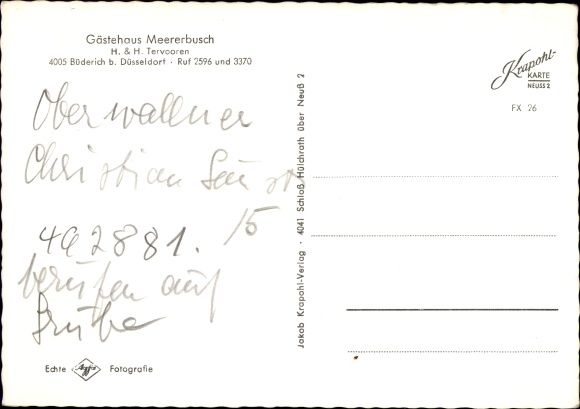 Gästehaus Meererbusch
H. & H. Tervooren
4005 Büderich b. Düsseldorf · Ruf 2596 und 3370
Oberwallner
Christian
15
492881.
berufen auf
Echte Agfa Fotografie
Jakob Krapohl-Verlag · 4041 Schloß Hülchrath über Neuß 2
Krapohl-
KARTE
NEUSS 2
FX 26